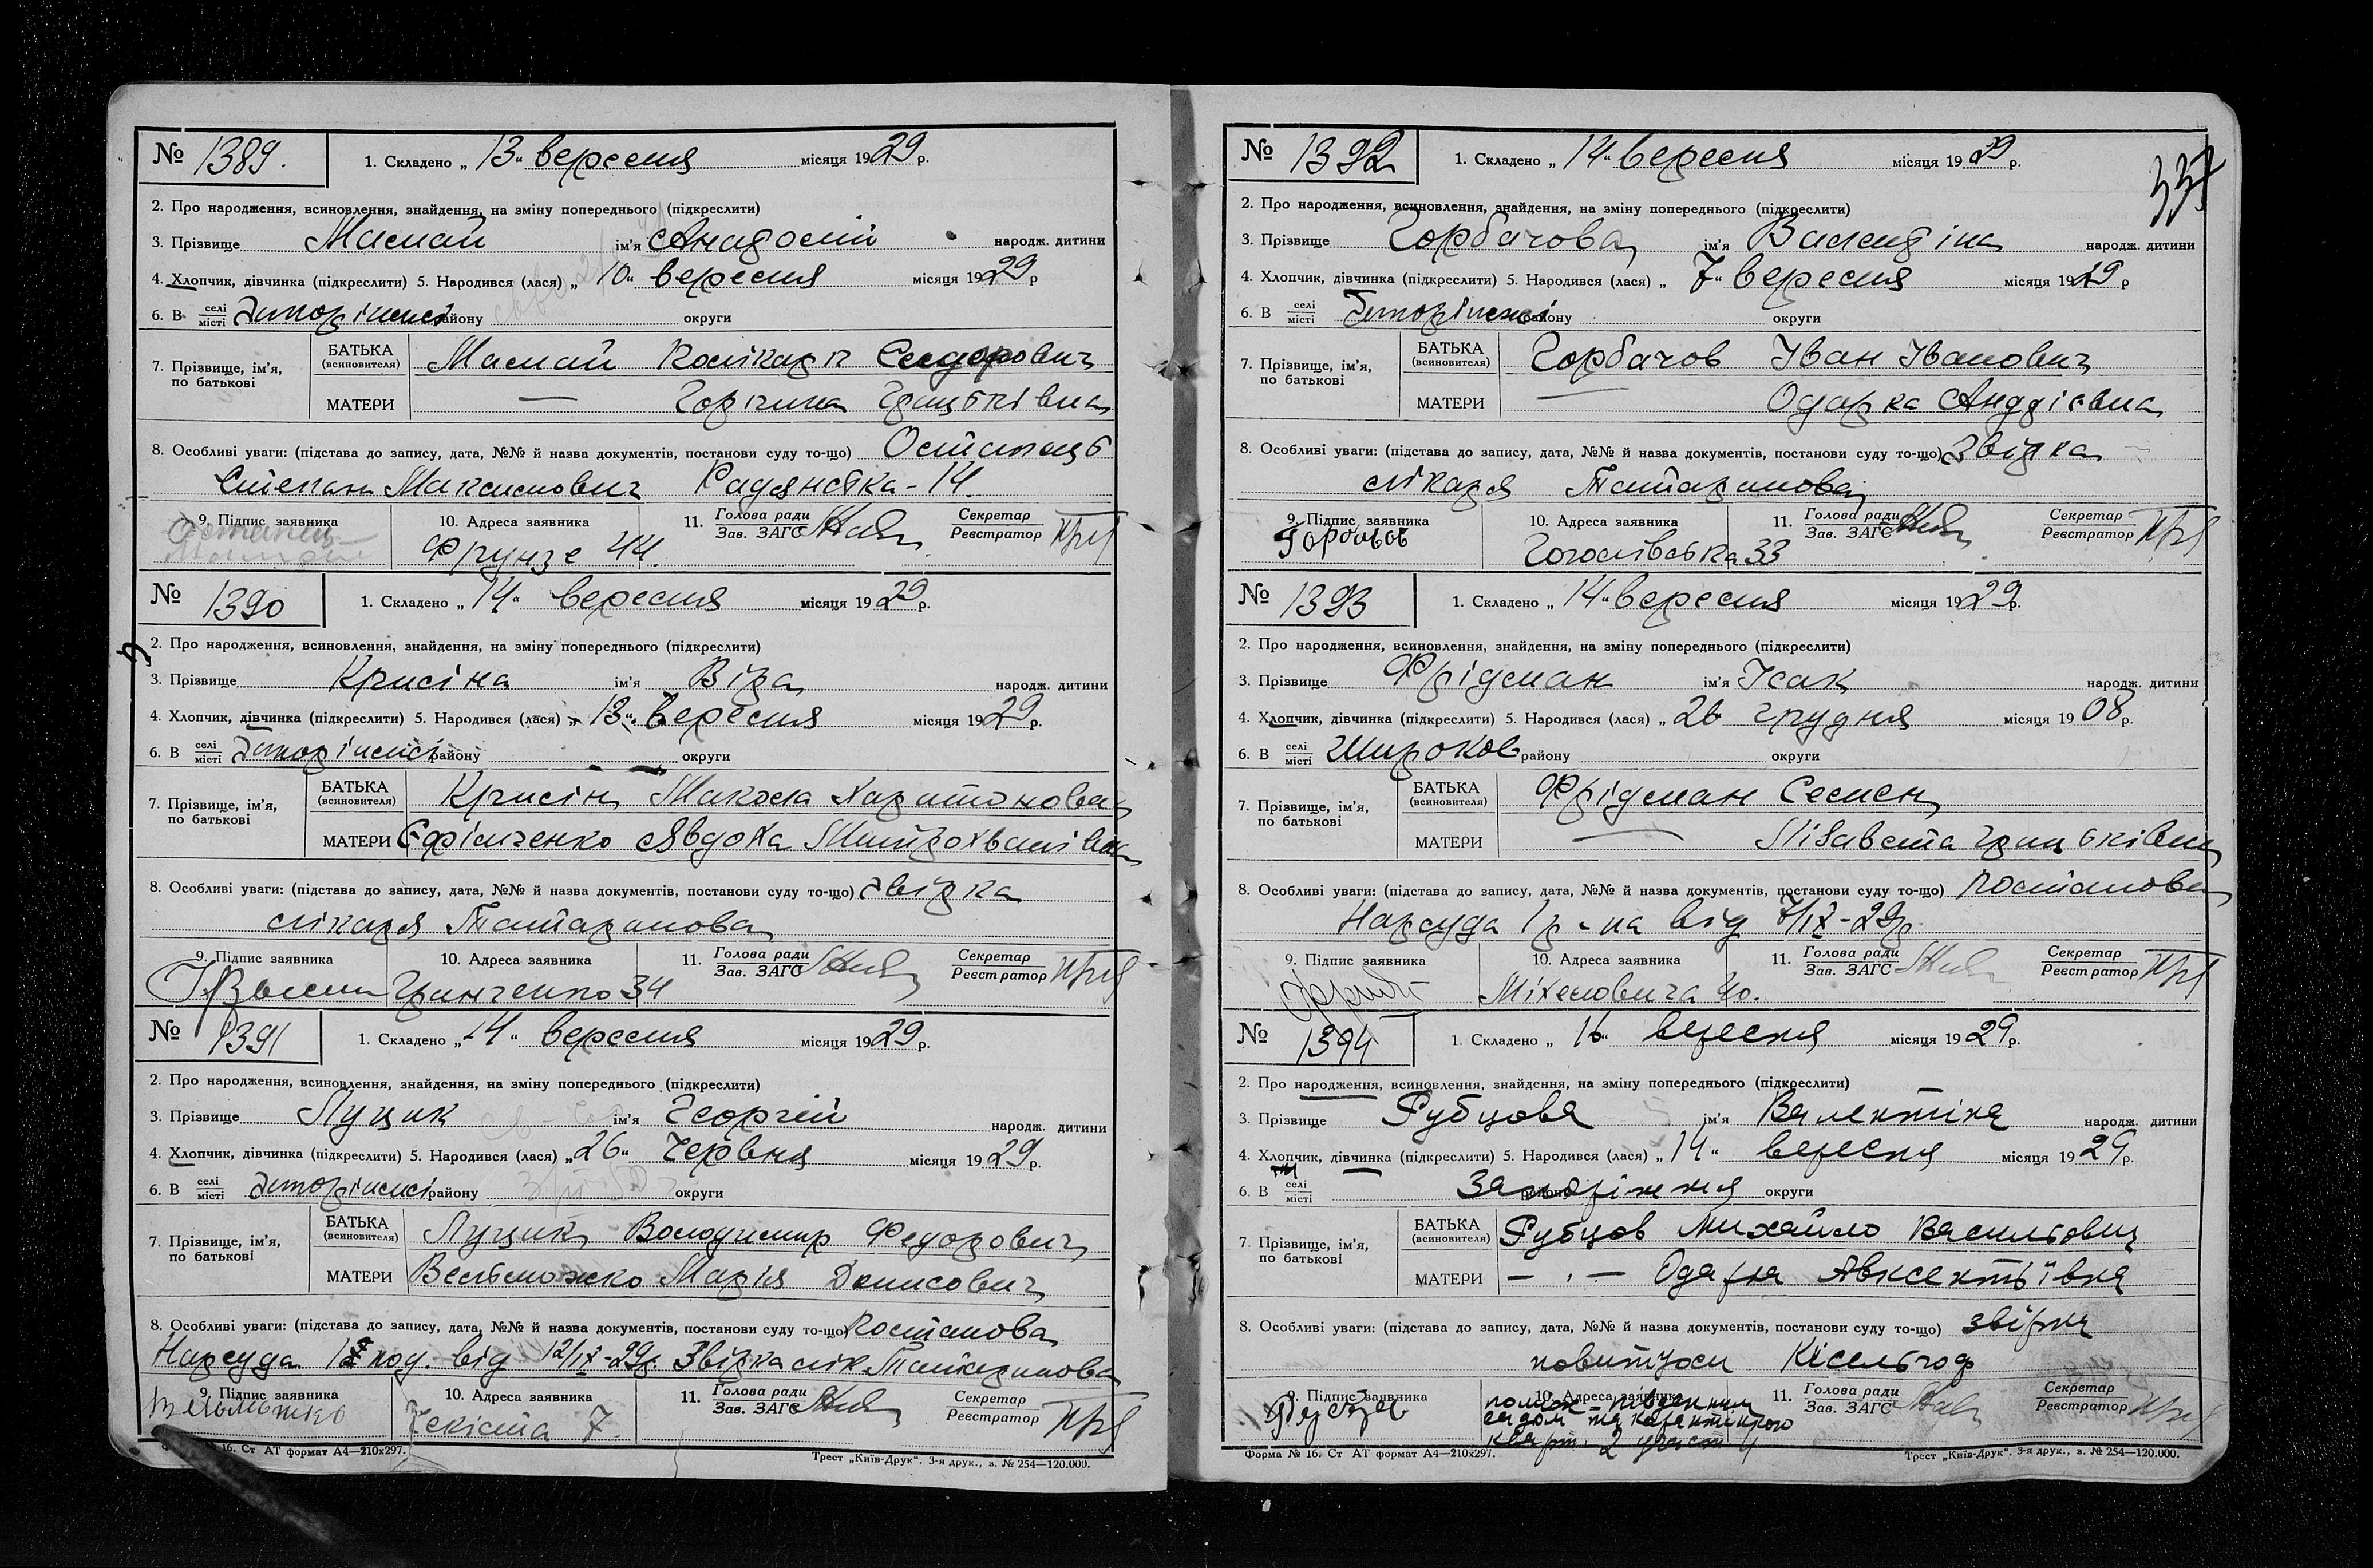 № 1389. 1. Складено „13" вересня місяця 1929 р.
2. Про народження, всиновлення, знайдення, на зміну попереднього (підкреслити)
3. Прізвище Масмай ім'я народж. дитини
4. Хлопчик, дівчинка (підкреслити) 5. Народився (лася) „10" вересня місяця 1929 р
6. В селі місті Запоріжжі району округи
7. Прізвище, ім'я, по батькові
БАТЬКА (всиновителя) Масмай Сидорович
МАТЕРИ — Горпина Грицьківна
8. Особливі уваги: (підстава до запису, дата, №№ й назва документів, постанови суду то-що) Остапець
Степан Максимович Радянська - 14.
9. Підпис заявника 10. Адреса заявника 11. Голова ради Зав. ЗАГС Секретар Реєстратор
Фрунзе 44.
№ 1390 1. Складено „14" вересня місяця 1929 р.
2. Про народження, всиновлення, знайдення, на зміну попереднього (підкреслити)
3. Прізвище Крисіна ім'я Віра народж. дитини
4. Хлопчик, дівчинка (підкреслити) 5. Народився (лася) „13" вересня місяця 1929 р.
6. В селі місті Запоріжжі району округи
7. Прізвище, ім'я, по батькові
БАТЬКА (всиновителя) Крисін Микола Харитонович
МАТЕРИ Єфімченко Явдоха Митрохванівна
8. Особливі уваги: (підстава до запису, дата, №№ й назва документів, постанови суду то-що) звідка
лікаря Татаринова
9. Підпис заявника 10. Адреса заявника 11. Голова ради Зав. ЗАГС Секретар Реєстратор
Грінченко 34
№ 1391 1. Складено „14" вересня місяця 1929 р.
2. Про народження, всиновлення, знайдення, на зміну попереднього (підкреслити)
3. Прізвище Луцик ім'я Георгій народж. дитини
4. Хлопчик, дівчинка (підкреслити) 5. Народився (лася) „26" Червня місяця 1929 р.
6. В селі місті Запоріжжі району округи
7. Прізвище, ім'я, по батькові
БАТЬКА (всиновителя) Луцик Володимир Федорович
МАТЕРИ Вельможко Марія Денисович
8. Особливі уваги: (підстава до запису, дата, №№ й назва документів, постанови суду то-що) Постанова
Нарсуда від 12/IX-29р. Звідка лік. Татаринова
9. Підпис заявника 10. Адреса заявника 11. Голова ради Зав. ЗАГС Секретар Реєстратор
Чекіста 7.
Форма № 16. Ст АТ формат А4—210х297. Трест „Київ-Друк". 3-я друк., з. № 254—120.000.
337
№ 1392 1. Складено „14" вересня місяця 1929 р.
2. Про народження, всиновлення, знайдення, на зміну попереднього (підкреслити)
3. Прізвище Горбачова ім'я Валентіна народж. дитини
4. Хлопчик, дівчинка (підкреслити) 5. Народився (лася) „7" вересня місяця 1929 р
6. В селі місті Запоріжжі району округи
7. Прізвище, ім'я, по батькові
БАТЬКА (всиновителя) Горбачов Іван Іванович
МАТЕРИ — Одарка Андрієвна
8. Особливі уваги: (підстава до запису, дата, №№ й назва документів, постанови суду то-що) Звідка
лікаря Татаринова
9. Підпис заявника 10. Адреса заявника 11. Голова ради Зав. ЗАГС Секретар Реєстратор
Гоголівська 33
№ 1393 1. Складено „14" вересня місяця 1929 р.
2. Про народження, всиновлення, знайдення, на зміну попереднього (підкреслити)
3. Прізвище Фрідман ім'я Ісак народж. дитини
4. Хлопчик, дівчинка (підкреслити) 5. Народився (лася) „26 грудня місяця 1908 р.
6. В селі місті Широков району округи
7. Прізвище, ім'я, по батькові
БАТЬКА (всиновителя) Фрідман Семен
МАТЕРИ — Лізавета Грицьківна
8. Особливі уваги: (підстава до запису, дата, №№ й назва документів, постанови суду то-що) постанова
Нарсуда 1 р-на від 7/IX-29р.
9. Підпис заявника 10. Адреса заявника 11. Голова ради Зав. ЗАГС Секретар Реєстратор
Міхеловича
№ 1394 1. Складено „16" вересня місяця 1929 р.
2. Про народження, всиновлення, знайдення, на зміну попереднього (підкреслити)
3. Прізвище Рубцова ім'я Валентіна народж. дитини
4. Хлопчик, дівчинка (підкреслити) 5. Народився (лася) „14" вересня місяця 1929 р.
6. В селі місті Запоріжжя району округи
7. Прізвище, ім'я, по батькові
БАТЬКА (всиновителя) Рубцов Михайло Васильович
МАТЕРИ — " — Одарка Авксентьївна
8. Особливі уваги: (підстава до запису, дата, №№ й назва документів, постанови суду то-що) звідка
повитухи Кісельгоф
9. Підпис заявника 10. Адреса заявника 11. Голова ради Зав. ЗАГС Секретар Реєстратор
Форма № 16. Ст АТ формат А4—210х297. Трест „Київ-Друк". 3-я друк., з. № 254—120.000.